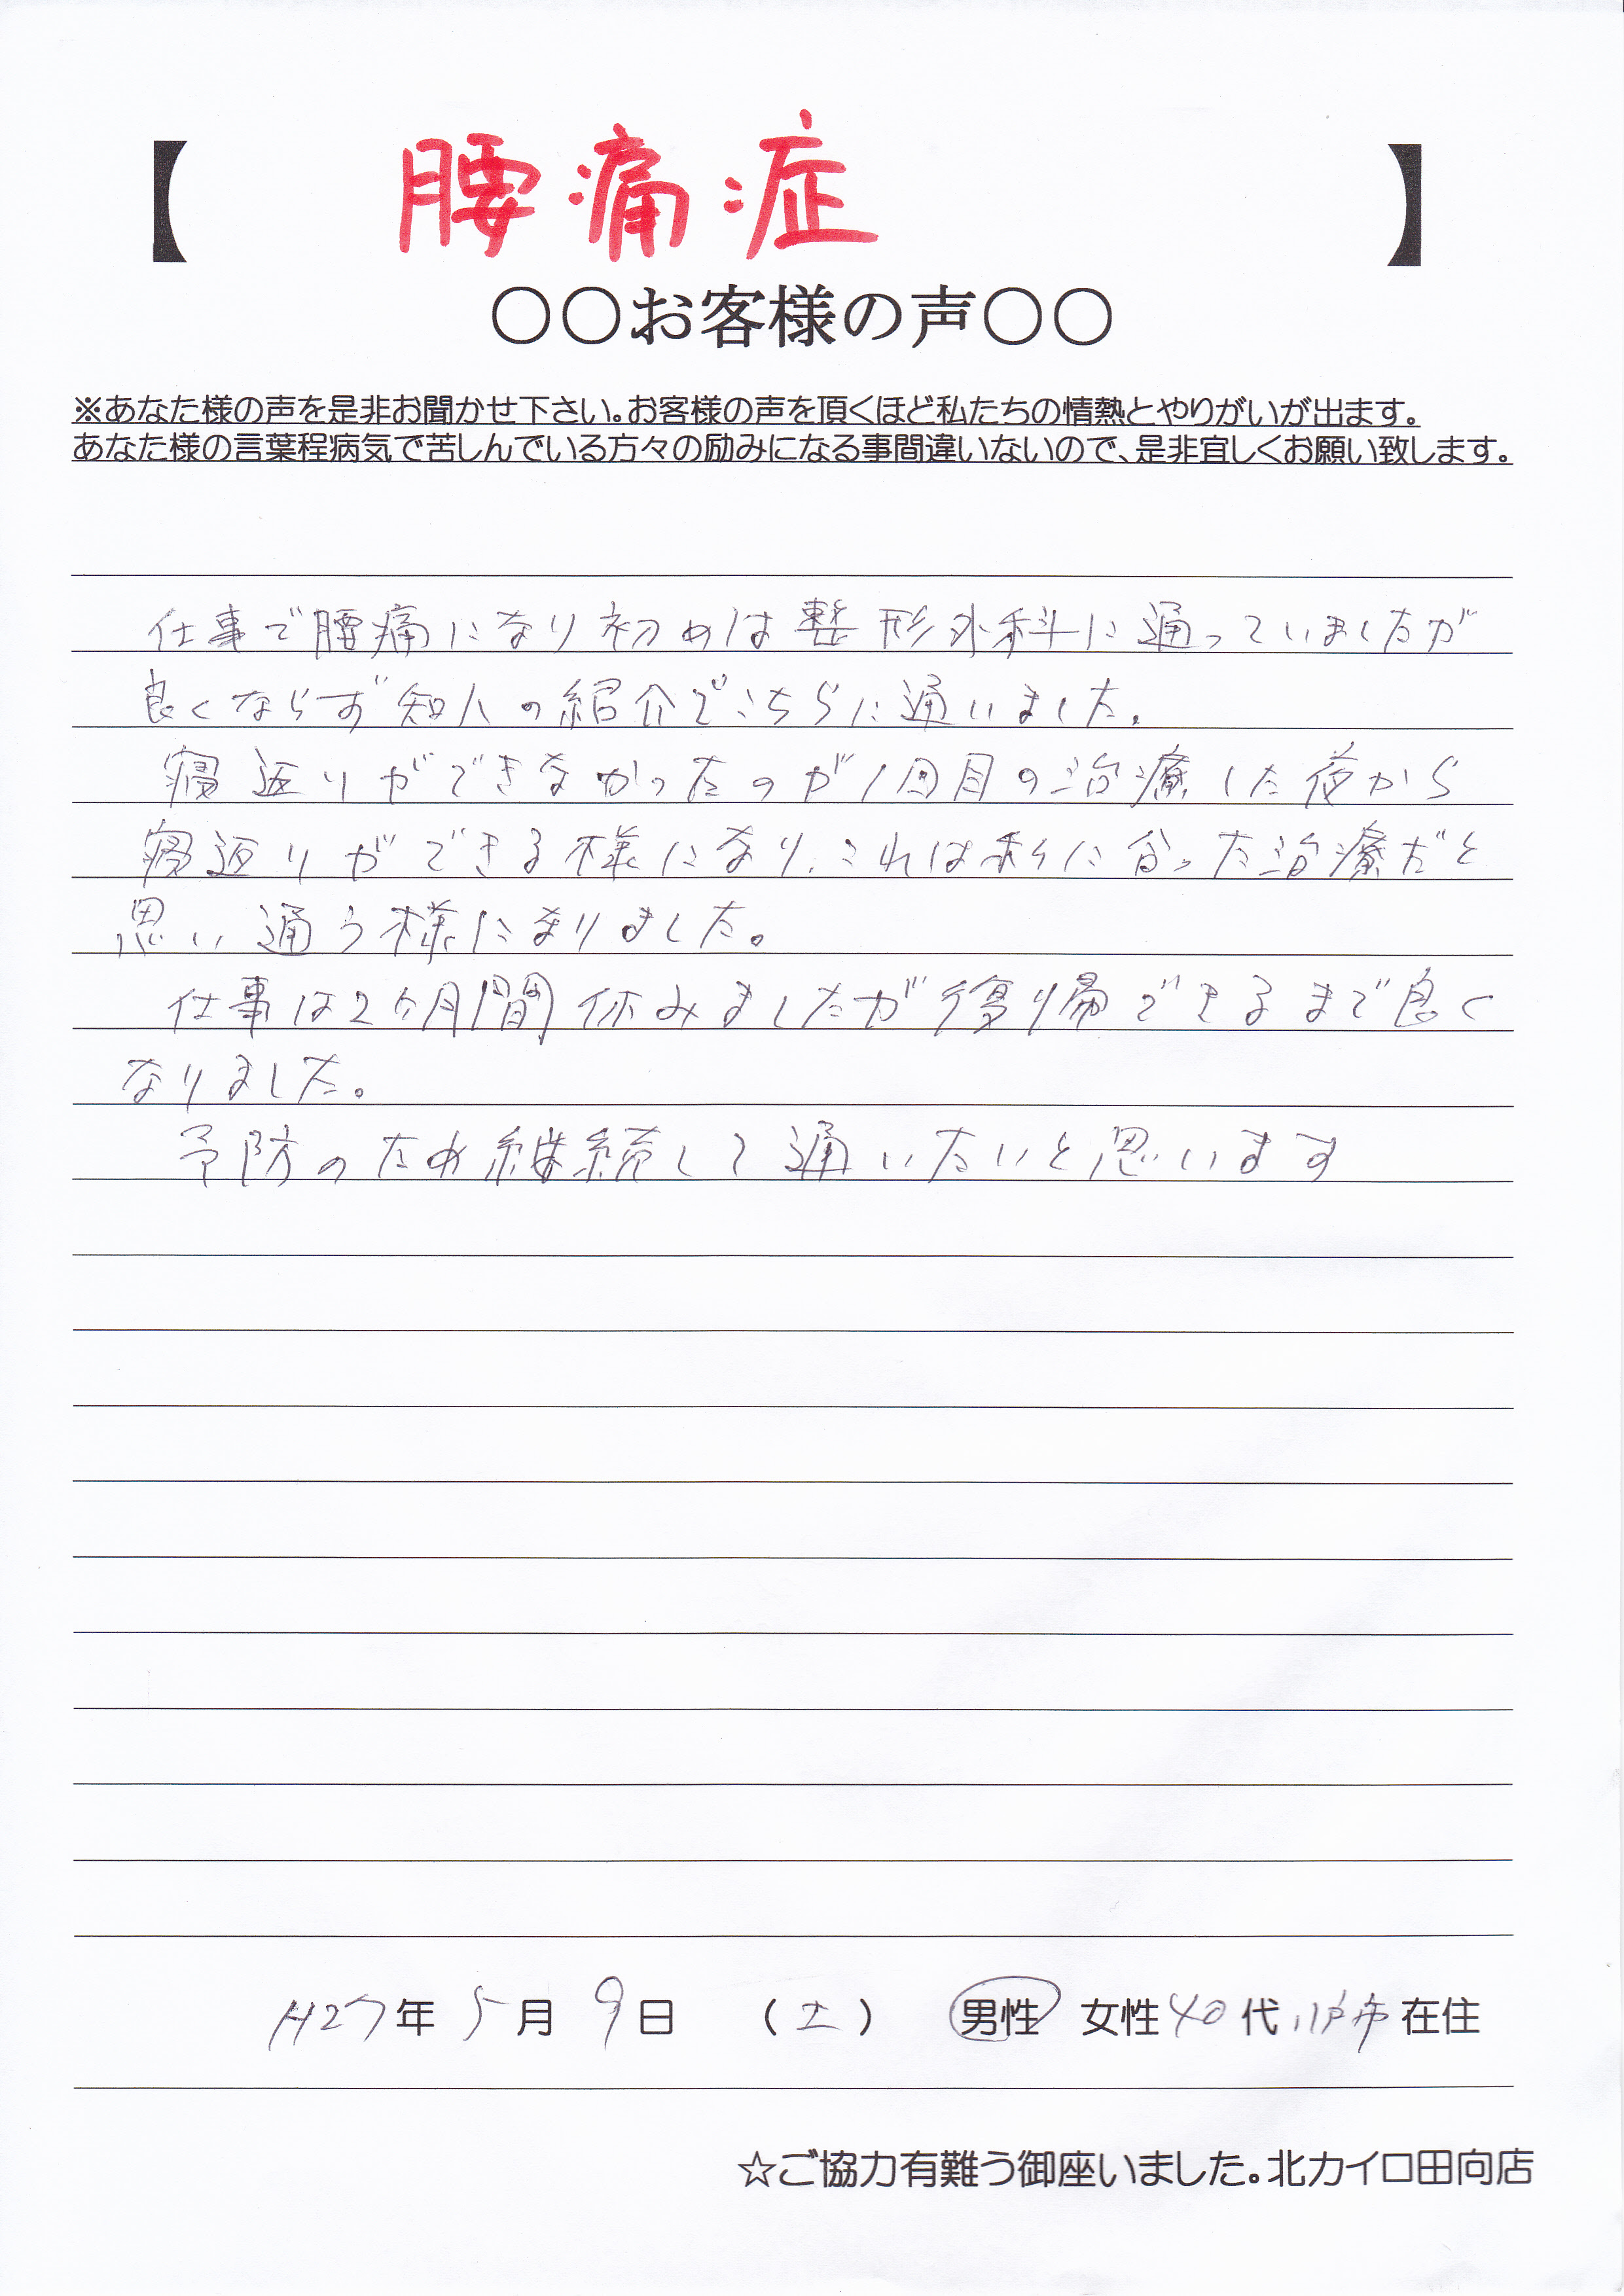 【 腰痛症 】
○○お客様の声○○
※あなた様の声を是非お聞かせ下さい。お客様の声を頂くほど私たちの情熱とやりがいが出ます。
あなた様の言葉程病気で苦しんでいる方々の励みになる事間違いないので、是非宜しくお願い致します。
仕事で腰痛になり初めは整形外科に通っていましたが
良くならず知人の紹介でこちらに通いました。
寝返りができなかったのが1回目の治療した夜から
寝返りができる様になり、これは私に合った治療だと
思い通う様になりました。
仕事は2ヶ月間休みましたが復帰できるまで良く
なりました。
予防のため継続して通いたいと思います
H27年 5月 9日 (土) 男性 女性 40代 八戸市在住
☆ご協力有難う御座いました。北カイロ田向店